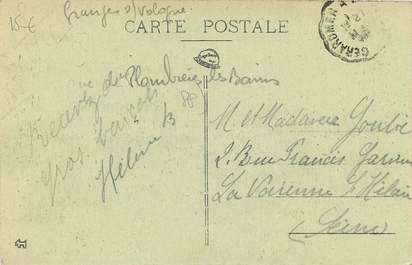 15 €
Granges s/Vologne
CARTE POSTALE
GERARDMER
vue de Plombières les Bains
88
gros baisers
Hélène B
M. et Madame
2. Rue Francis
La Varenne St Hilaire
(Seine)